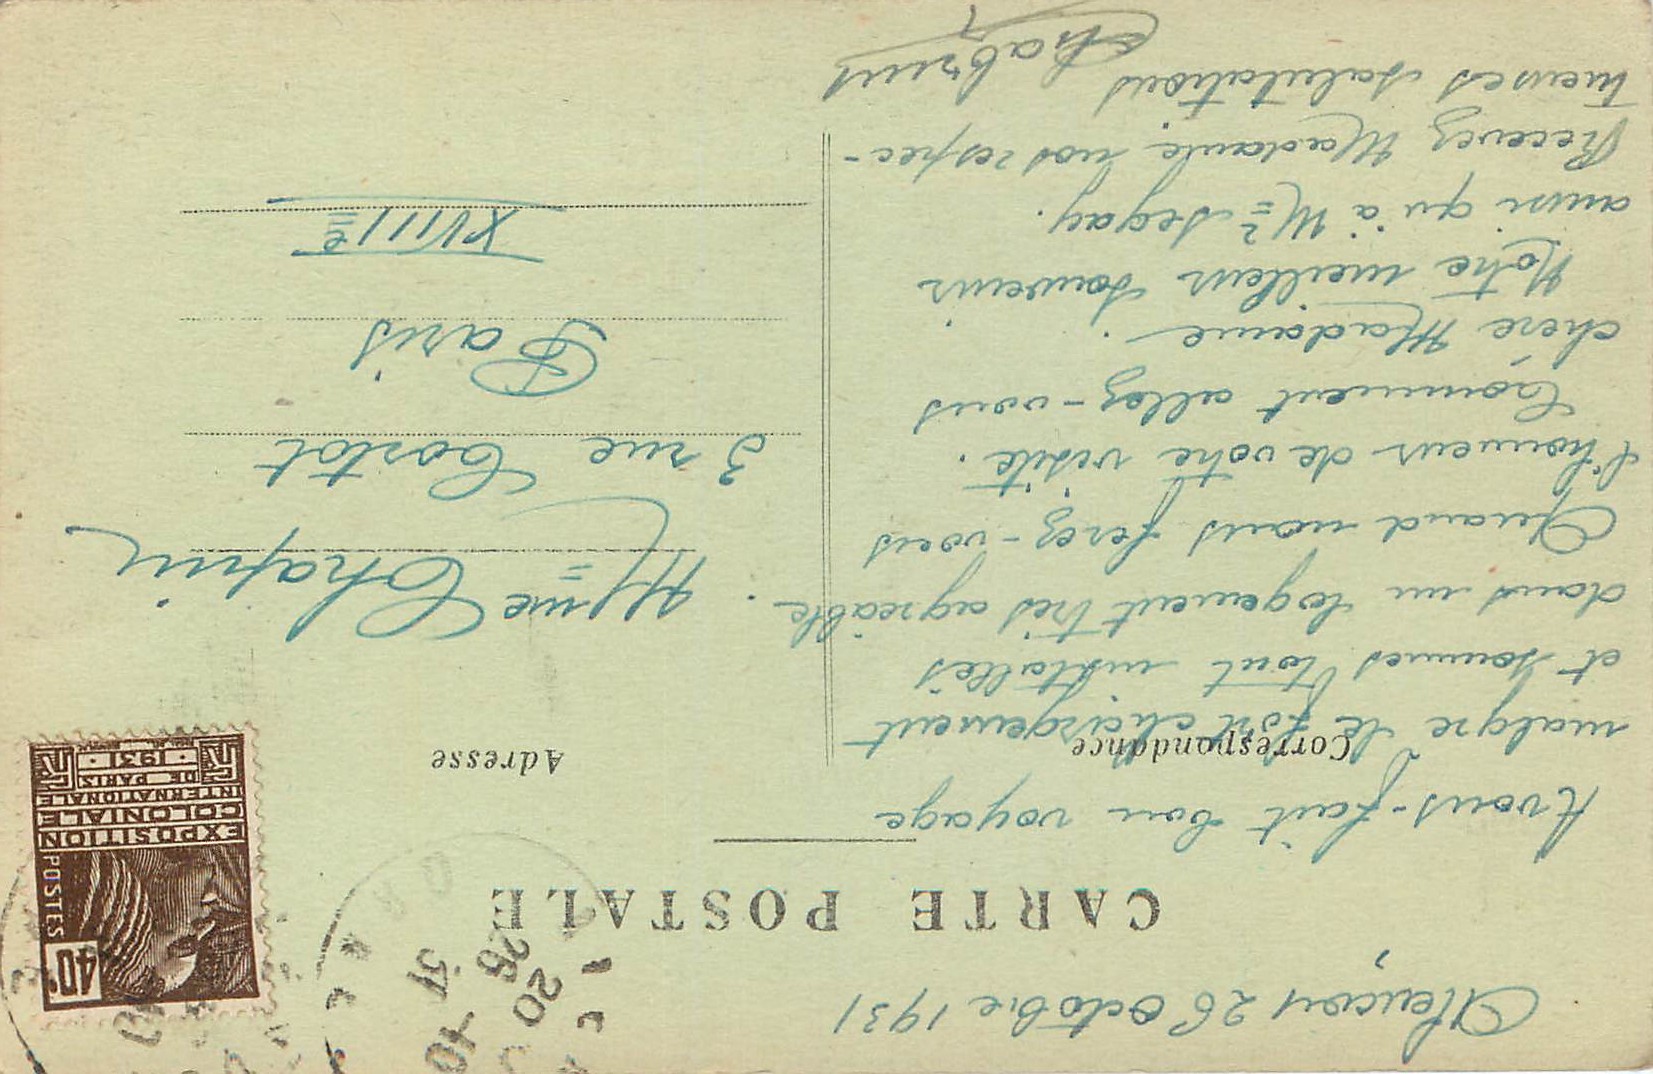 Alençon, 26 octobre 1931
CARTE POSTALE
Avons-fait bon voyage
Correspondance
malgré le fort chargement
et sommes tout installés
dans un logement très agréable.
Quand nous ferez-vous
l'honneur de votre visite.
Comment allez-vous
chère Madame.
Notre meilleur souvenir
aussi qu'à Mr Segay.
Recevez Madame nos respec-
tueuses salutations
Adresse
Mme Chapin
3 rue Cortot
Paris
XVIIIe
40c
POSTES
EXPOSITION
COLONIALE
INTERNATIONALE
DE PARIS
·1931·
20
26 -10
31